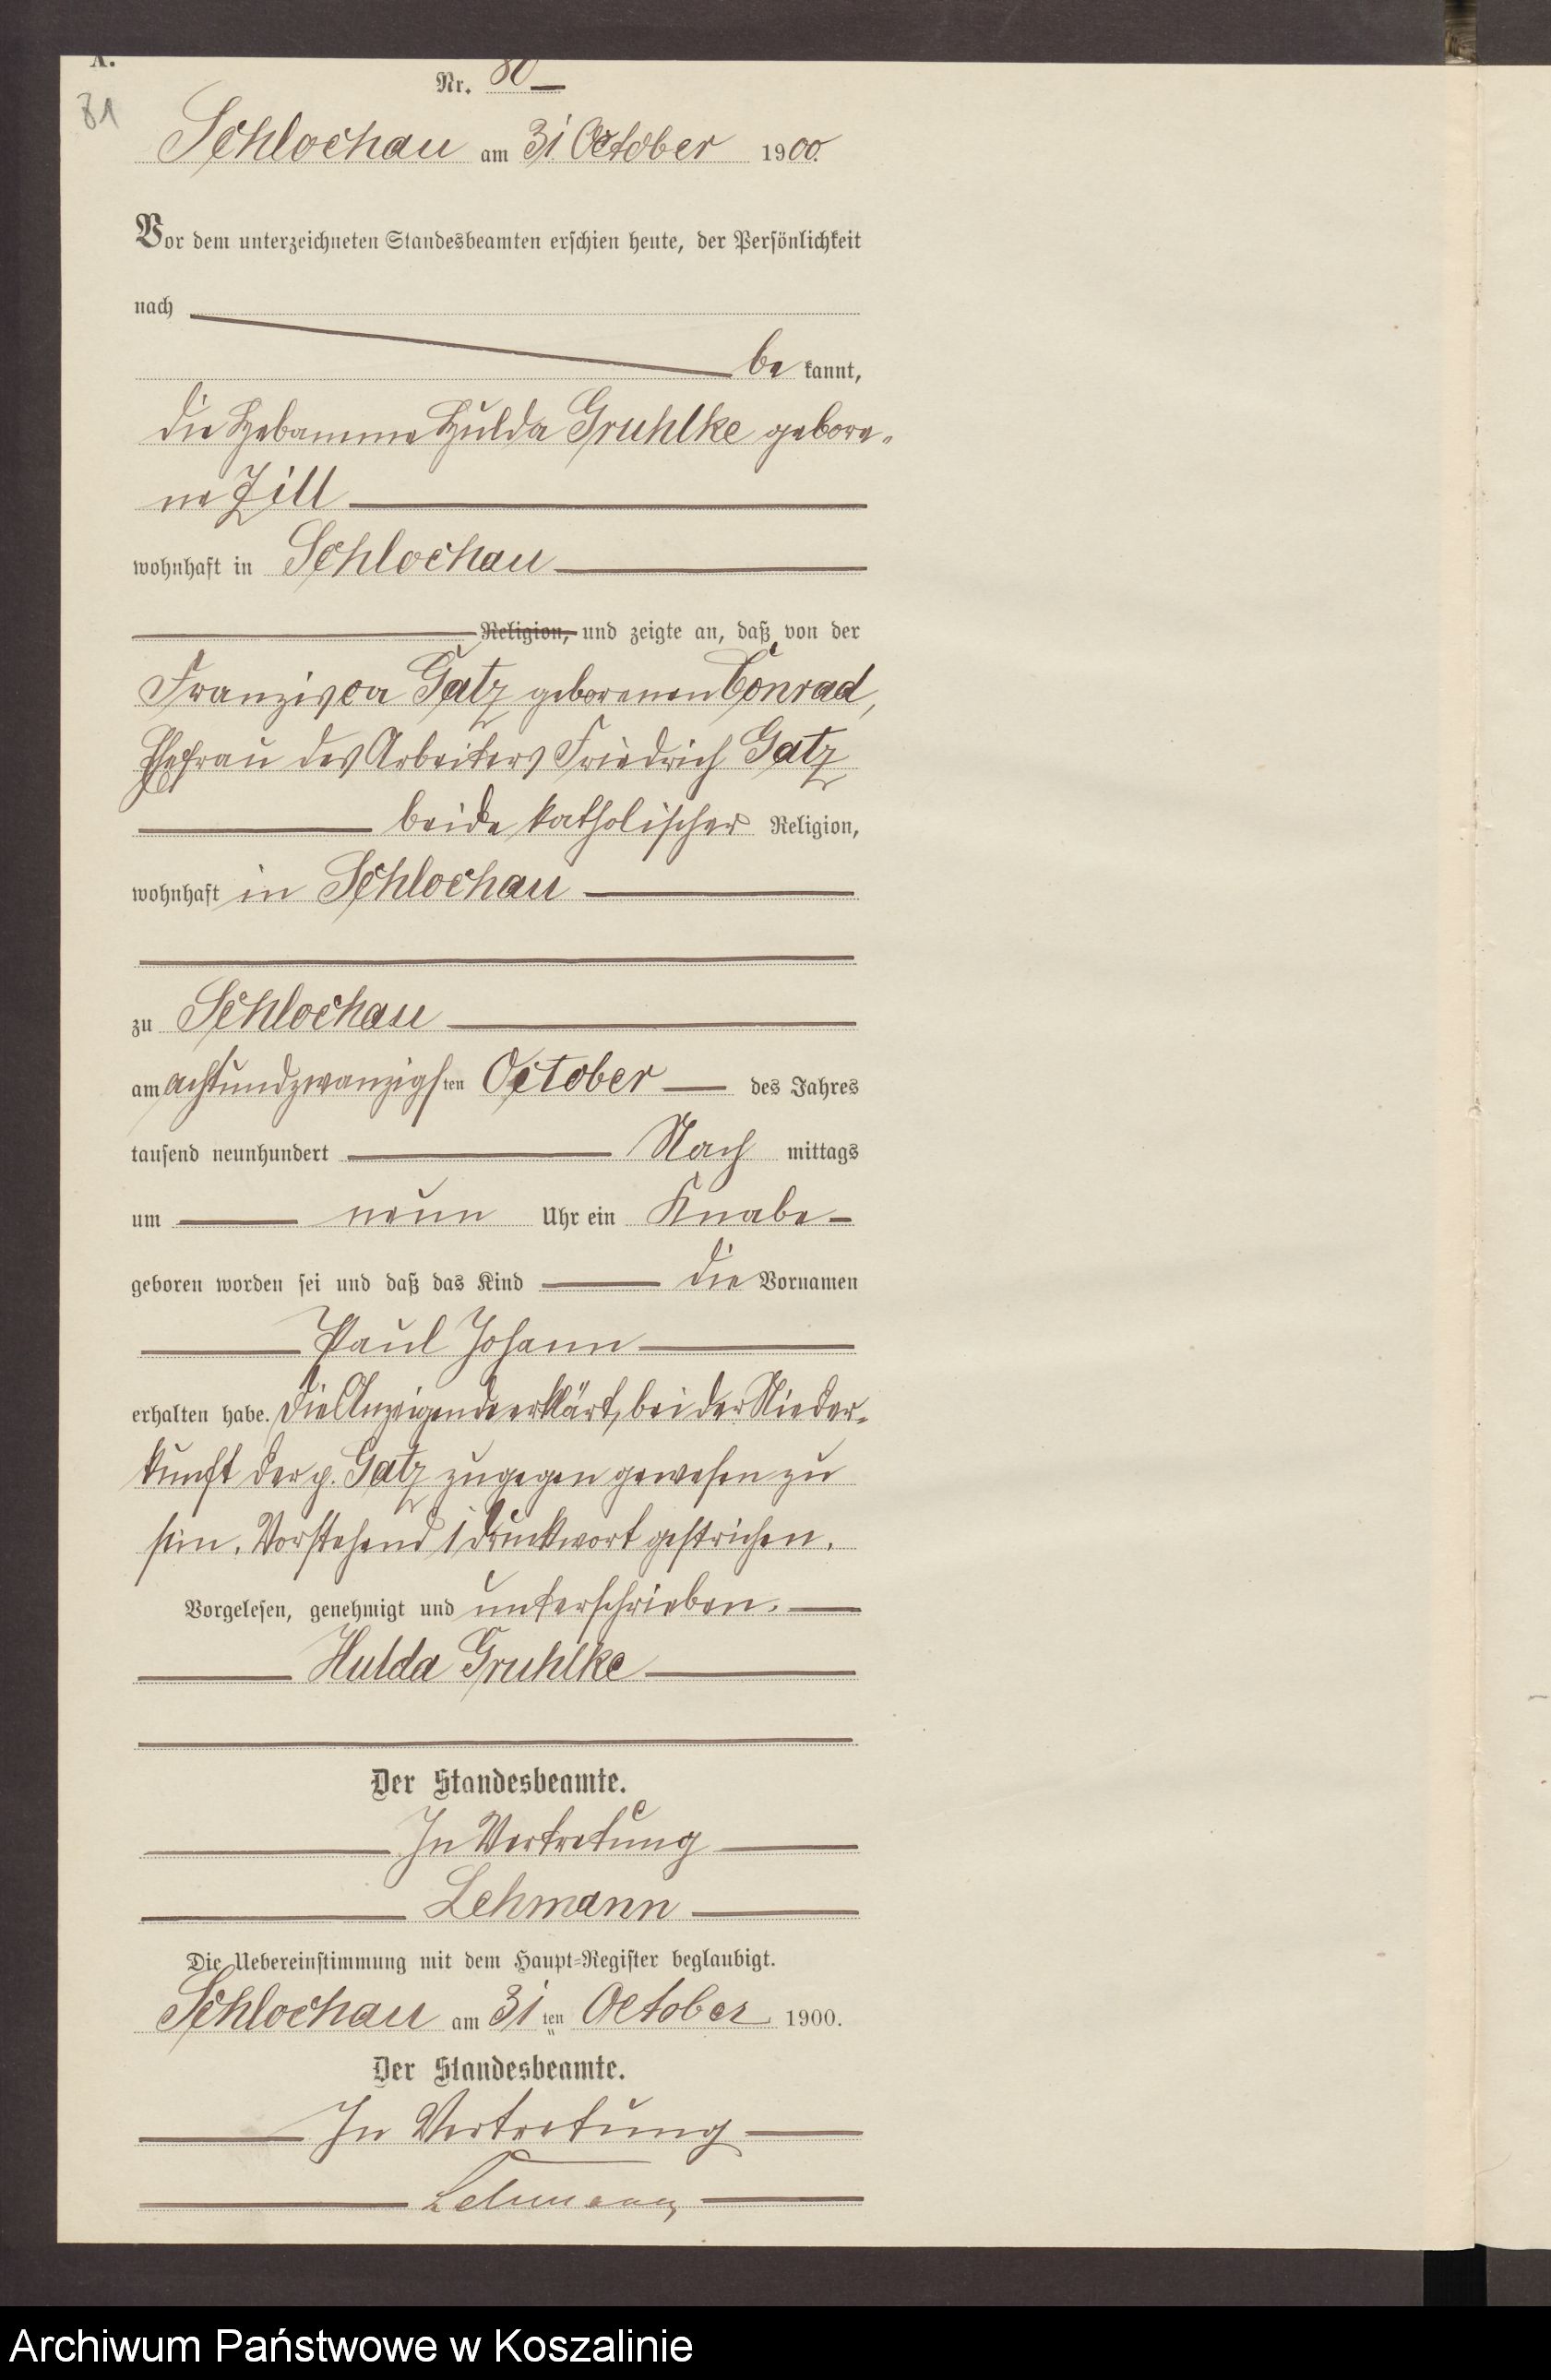 A.
81
Nr. 80
Schlochau am 31 October 1900.
Vor dem unterzeichneten Standesbeamten erschien heute, der Persönlichkeit
nach
be kannt,
die Hebamme Hulda Gruhlke gebore-
ne Zill
wohnhaft in Schlochau
Religion, und zeigte an, daß von der
Franzisca Gatz geborenen Conrad,
Ehefrau des Arbeiters Friedrich Gatz
beide katholischer Religion,
wohnhaft in Schlochau
zu Schlochau
am achtundzwanzigsten October des Jahres
tausend neunhundert Nach mittags
um neun Uhr ein Knabe
geboren worden sei und daß das Kind die Vornamen
Paul Johann
erhalten habe. Die Anzeigende erklärt, bei der Nieder-
kunft der p. Gatz zugegen gewesen zu
sein. Vorstehend 1 Druckwort gestrichen.
Vorgelesen, genehmigt und unterschrieben.
Hulda Gruhlke
Der Standesbeamte.
In Vertretung
Lehmann
Die Uebereinstimmung mit dem Haupt=Register beglaubigt.
Schlochau am 31 ten October 1900.
Der Standesbeamte.
In Vertretung
Lehmann
Archiwum Państwowe w Koszalinie